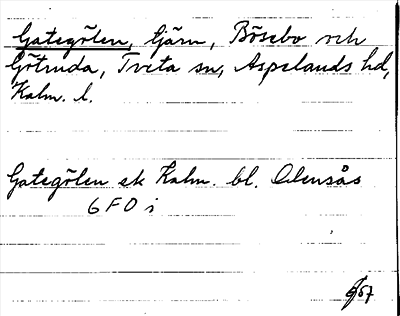 Gategölen, tjärn, Bösebo och
Götruda, Tveta sn, Aspelands hd,
Kalm. l.
Gategölen ek Kalm. bl. Ålensås
6 F 0 i
57